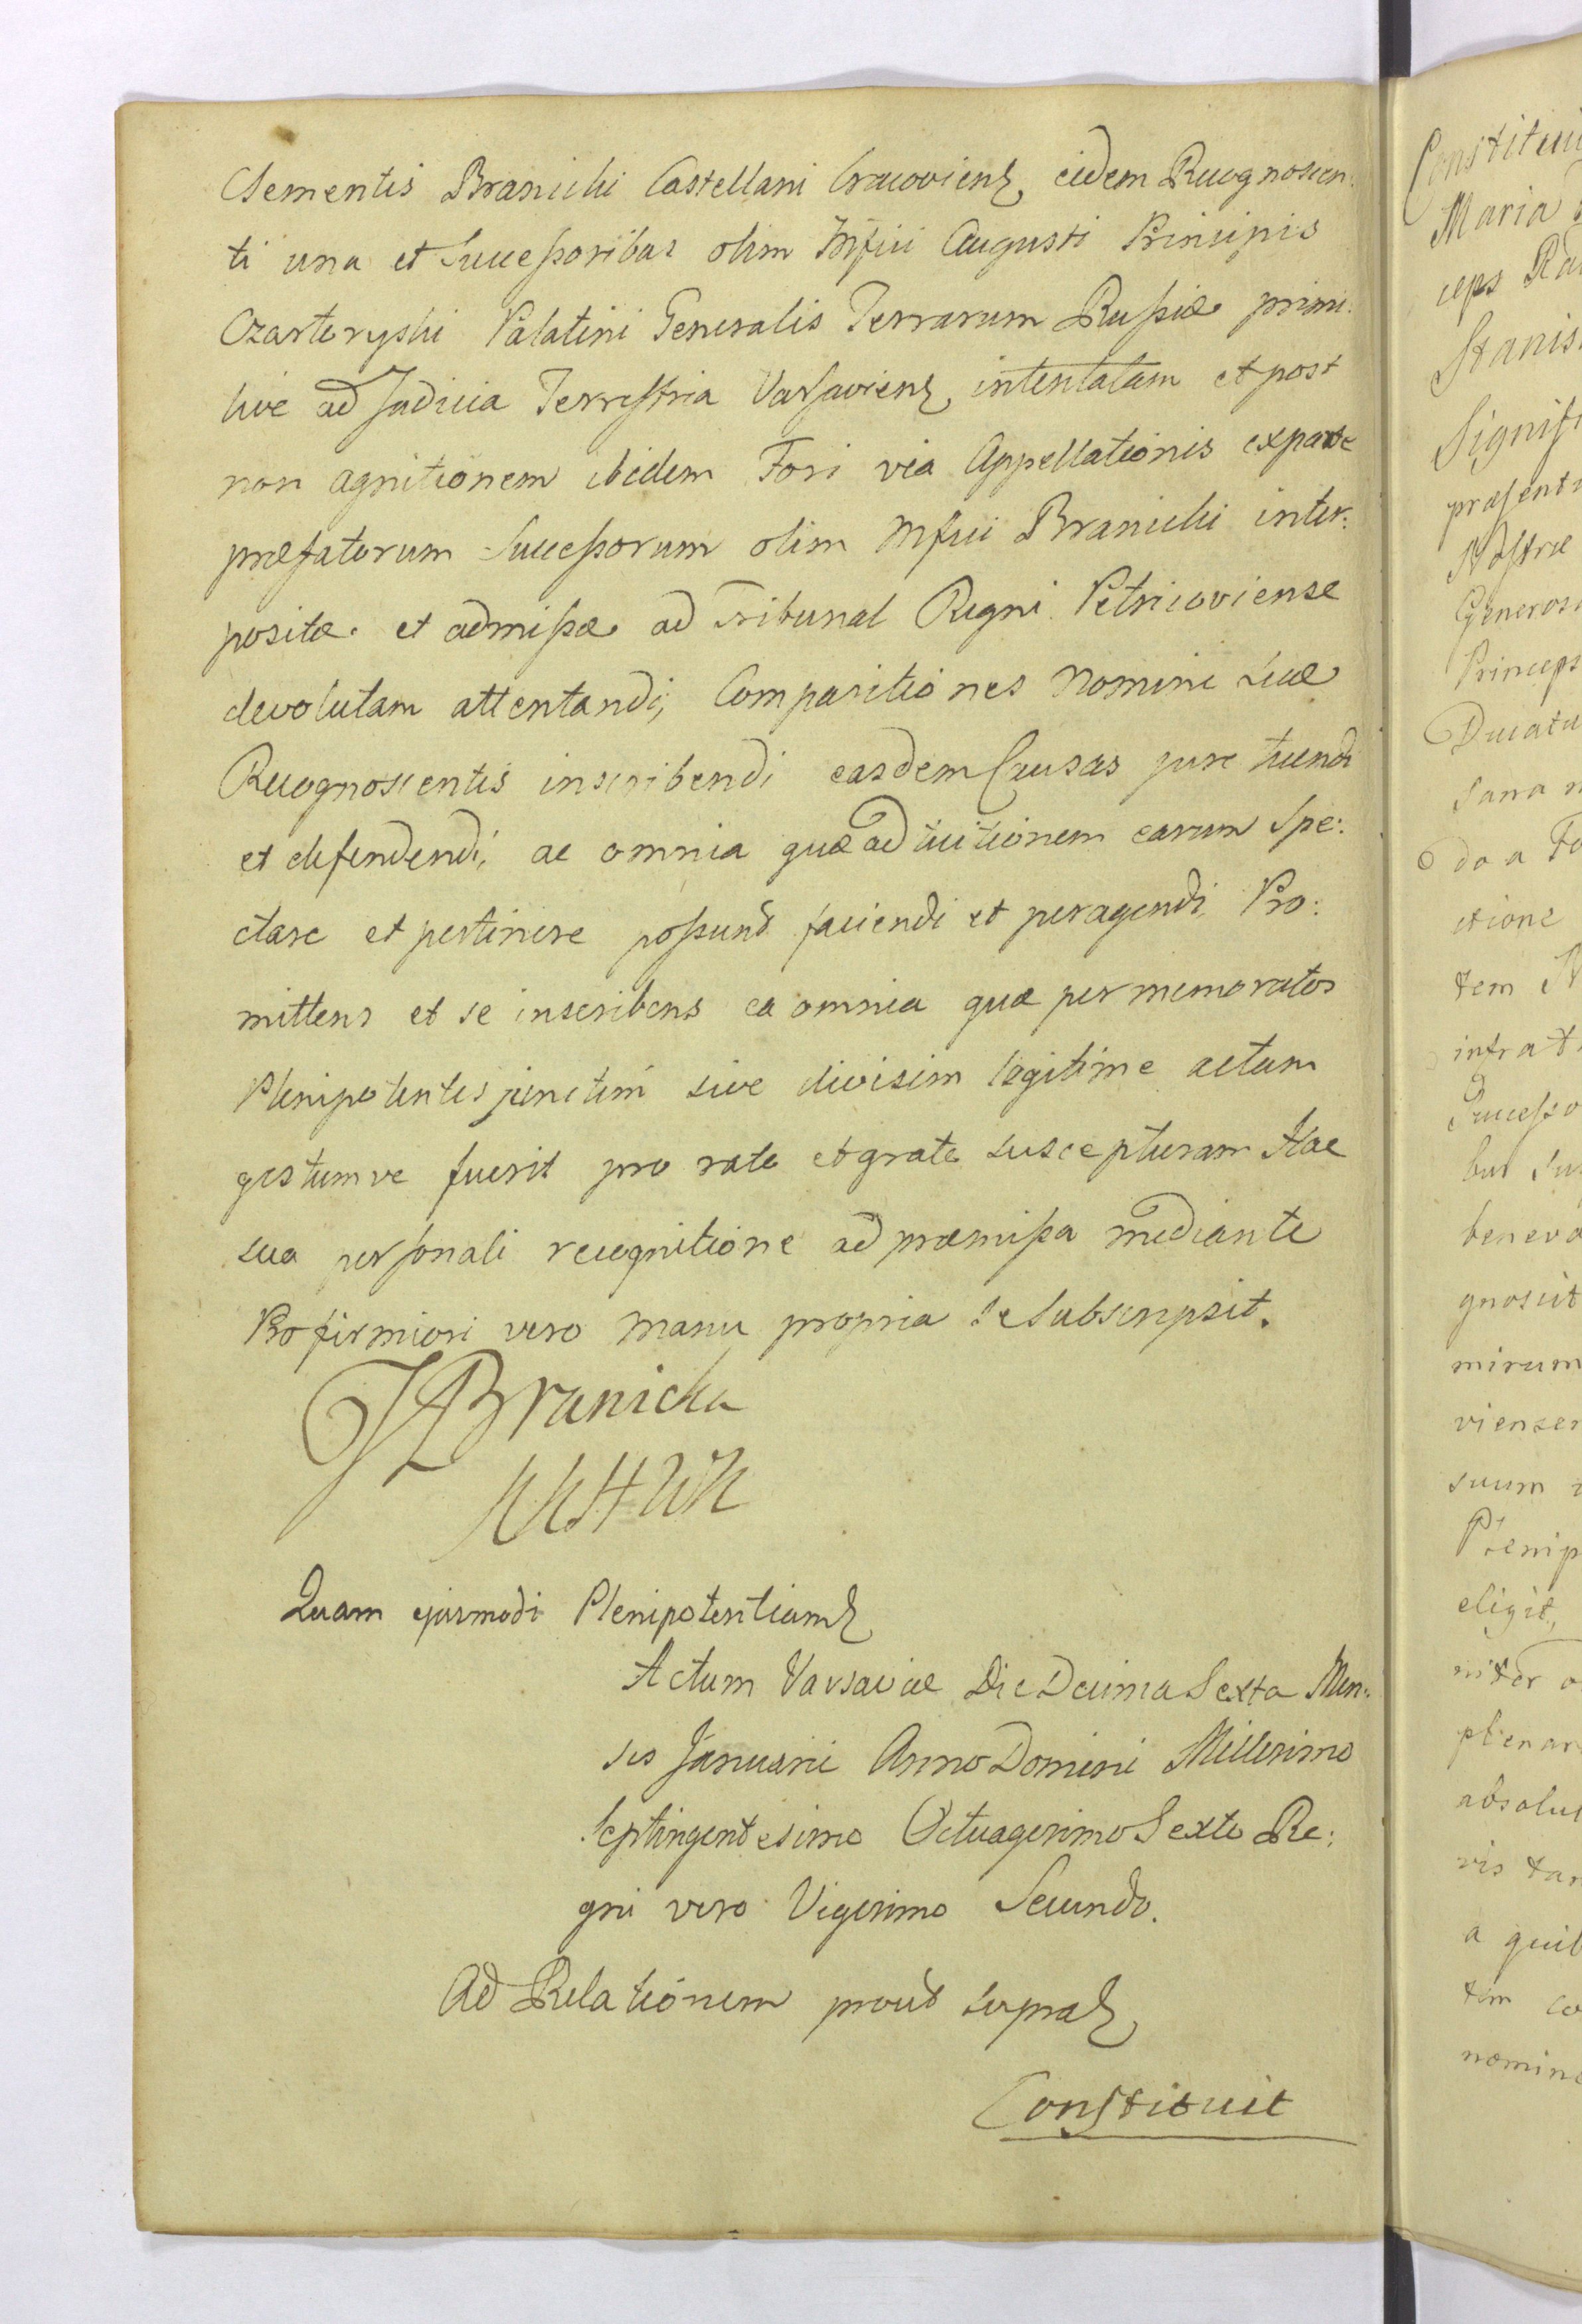 Clementis Branicki Castellani Cracoviens, eidem Recognoscen:
ti una et Successoribus olim Mfici Augusti Principis
Czartoryski Palatini Generalis Terrarum Russiæ primi:
tive ad Judicia Terrestria Varsaviens, intentatam et post
non agnitionem ibidem Fori via Appellationis ex parte
præfatorum Successorum olim Mfici Branicki inter:
positæ et admissæ ad Tribunal Regni Petricoviense
devolutam attentandi, Comparitiones Nomine suæ
Recognoscentis inscribendi easdem Causas jure tuendi
et defendendi, ac omnia quæ ad tuitionem earum Spe:
ctare et pertinere possunt faciendi et peragendi, Pro:
mittens et se inscribens ea omnia quæ per memoratos
Plenipotentes junctim sive divisim legitime actum
gestumve fuerit pro rato et grato suscepturam Hac
sua personali recognitione ad præmissa mediante
Pro firmiori vero manu propria se Subscripsit.
Branicka
Quam ejusmodi Plenipotentiam
Actum Varsaviæ Die Decima Sexta Men:
sis Januarii Anno Domini Millesimo
Septingentesimo Octuagesimo Sexto Re:
gni vero Vigesimo Secundo.
Ad Relationem prout supra
Constituit
Constitui
Maria
ceps Ra
Stanis
Signif
præsent
Nostræ
Generos
Princeps
Ducatu
Sana
do a
ctione
tem
infra
Successo
bus
benevo
gnoscit
mirum
vienser
suum
Plenip
eligit,
niter
plenar
absolu
vis tan
a quib
tem
nomine